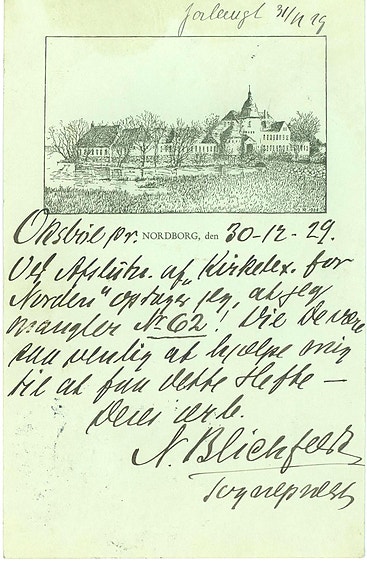 forlangt 31/12 29
Oksbøl pr. NORDBORG, den 30-12-29.
Ved Afslutn. af „Kirkelex. for
Norden“ opdager jeg, at jeg
mangler No 62! Vil De være
saa venlig at hjælpe mig
til at faa dette Hefte —
Deres ærb.
N. Blichfeldt
Sognepræst